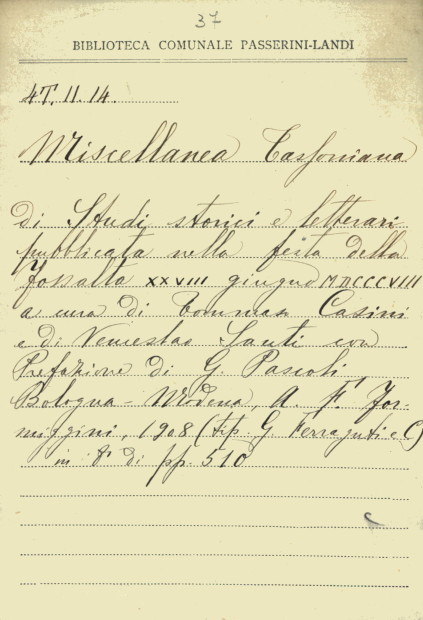 37
BIBLIOTECA COMUNALE PASSERINI-LANDI
4T. II. 14.
Miscellanea Tassoniana
di Studi storici e letterari
pubblicata nella festa della
Fossalta XXVIII giugno MDCCCVIII
a cura di Tommaso Casini
e di Venceslao Santi con
Prefazione di G. Pascoli,
Bologna - Modena, A. F. For-
miggini, 1908 (tip. G. Ferraguti e C)
in 8° di pp. 510